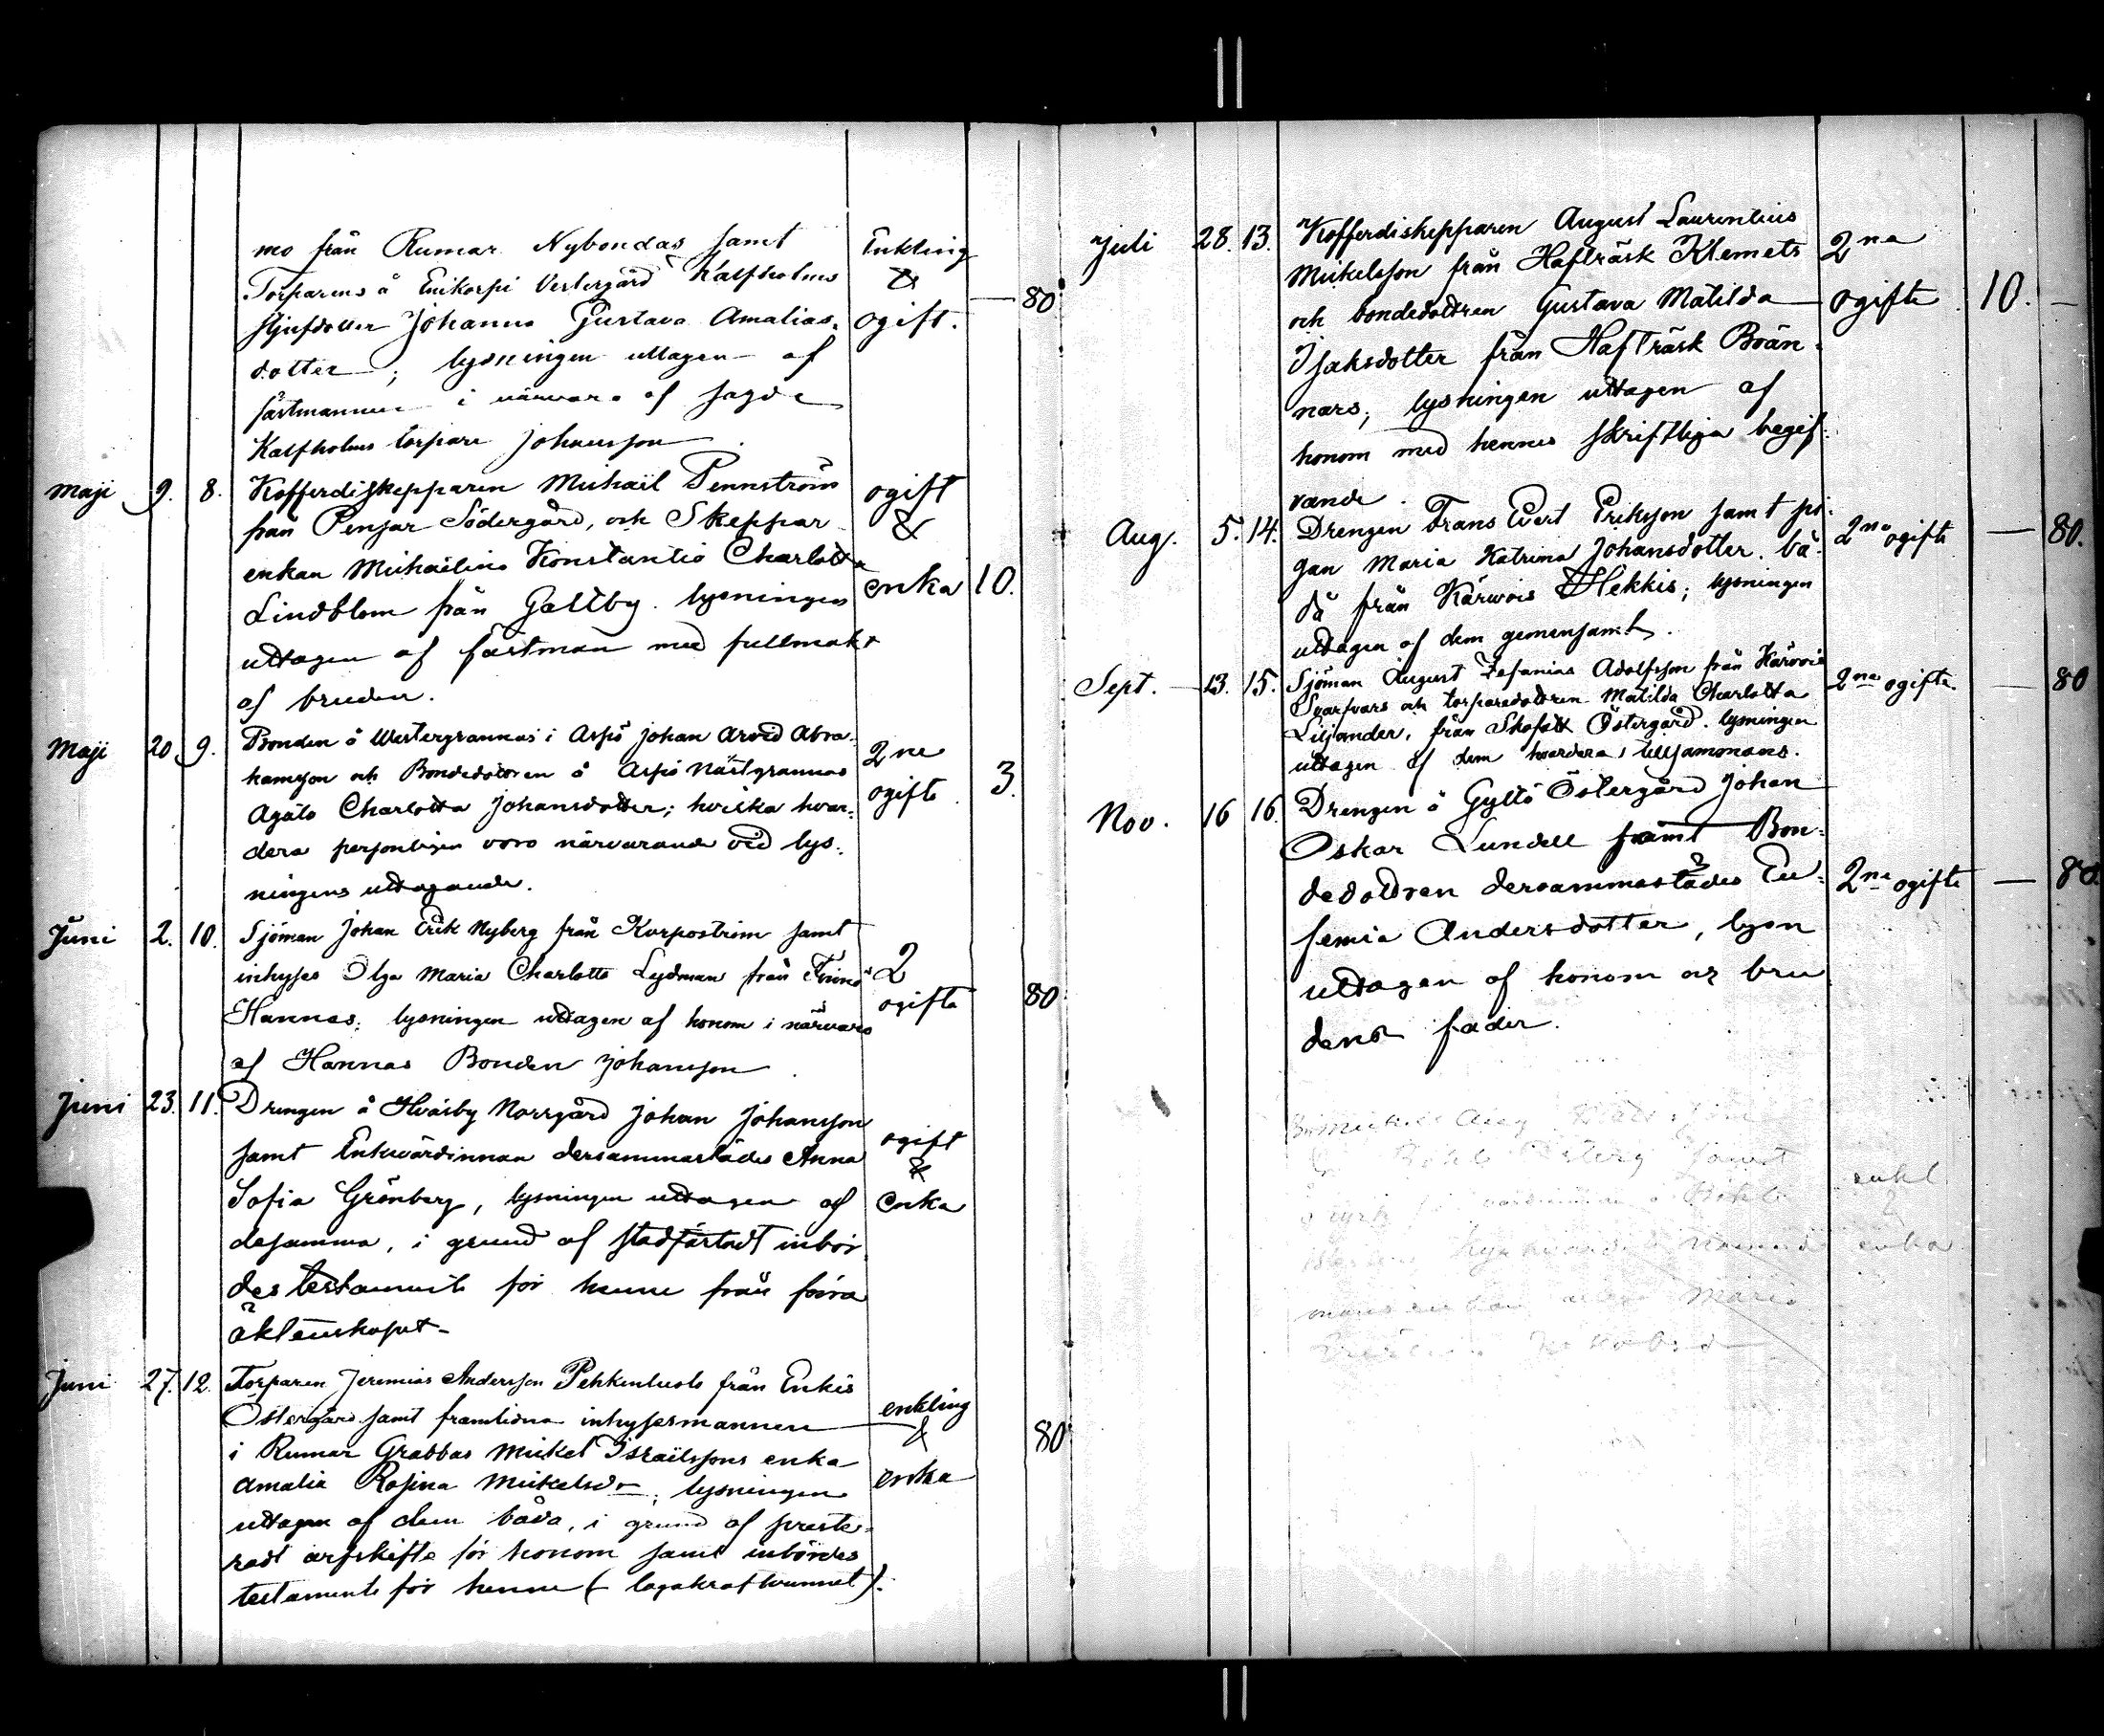 mo från Rumar Nybondas samt
Torparens å Enikorpi Vestergård Kalfholms
styfdotter Johanna Gustava Amalias-
dotter; lysningen uttagen af
fästmannen i närvaro af sagde
Kalfholms torpare Johansson.
Enkling
&
ogift.
— 80
Maji 9. 8. Kofferdiskepparen Michaël Pennström
från Pensar Södergård, och Skeppar
enkan Michaëlina Konstantia Charlotta
Lindblom från Galtby. lysningen
uttagen af fästman med fullmakt
af bruden.
ogift
&
enka 10.
Maji 20 9. Bonden å Westergrannas i Aspö Johan Arvid Abra-
hamsson och Bondedottren å Aspö Nästgrannas
Agata Charlotta Johansdotter; hvilka hvar-
dera personligen voro närvarande vid lys-
ningens uttagande.
2ne
ogifte 3.
Juni 2. 10. Sjöman Johan Erik Nyberg från Korpoström samt
inhyses Olga Maria Charlotta Lydman från Finnö
Hannas; lysningen uttagen af honom i närvaro
af Hannas Bonden Johansson.
2
ogifta 80
Juni 23. 11. Drengen å Hvåsby Norrgård Johan Johansson
samt Enkvärdinnan dersammastädes Anna
Sofia Grönberg, lysningen uttagen af
desamma, i grund af stadfästadt inbör
des testamente för henne från förra
äktenskapet.
ogift
&
enka
Juni 27. 12. Torparen Jeremias Andersson Pekkenlusto från Enkis
Östergård samt framlidna inhysesmannen
i Rumar Grabbas Mickel Israëlssons enka
Amalia Rosina Mickelsdr; lysningen
uttagen af dem båda, i grund af preste-
radt arfskifte för honom samt inbördes
testamente för henne (lagakraftvunnet).
enkling
&
enka
80
Juli 28. 13. Kofferdiskepparen August Laurentius
Mickelsson från Hafträsk Klemets
och bondedottren Gustava Matilda
Isaksdotter från Hafträsk Brän-
nars; lysningen uttagen af
honom med hennes skriftliga begif-
vande.
2ne
ogifte 10. —
Aug. 5. 14. Drengen Frans Evert Eriksson samt pi-
gan Maria Katrina Johansdotter. bå-
då från Kärvois Hekkis; lysningen
uttagen af dem gemensamt.
2ne ogifte — 80.
Sept. 13. 15. Sjöman August Zefanias Adolfsson från Kärvois
Svarfvars och torparedottren Matilda Charlotta
Liljander, från Skofatt Östergård. lysningen
uttagen af dem hvardera tillsammans.
2ne ogifte. — 80
Nov. 16 16. Drengen å Gyttö Östergård Johan
Oskar Lundell samt Bon-
dedottren dersammastädes Eu-
femia Andersdotter, lysn
uttagen af honom oz bru
dens fader.
2ne ogifte — 80.
samt
enkl
&
enka
Maria